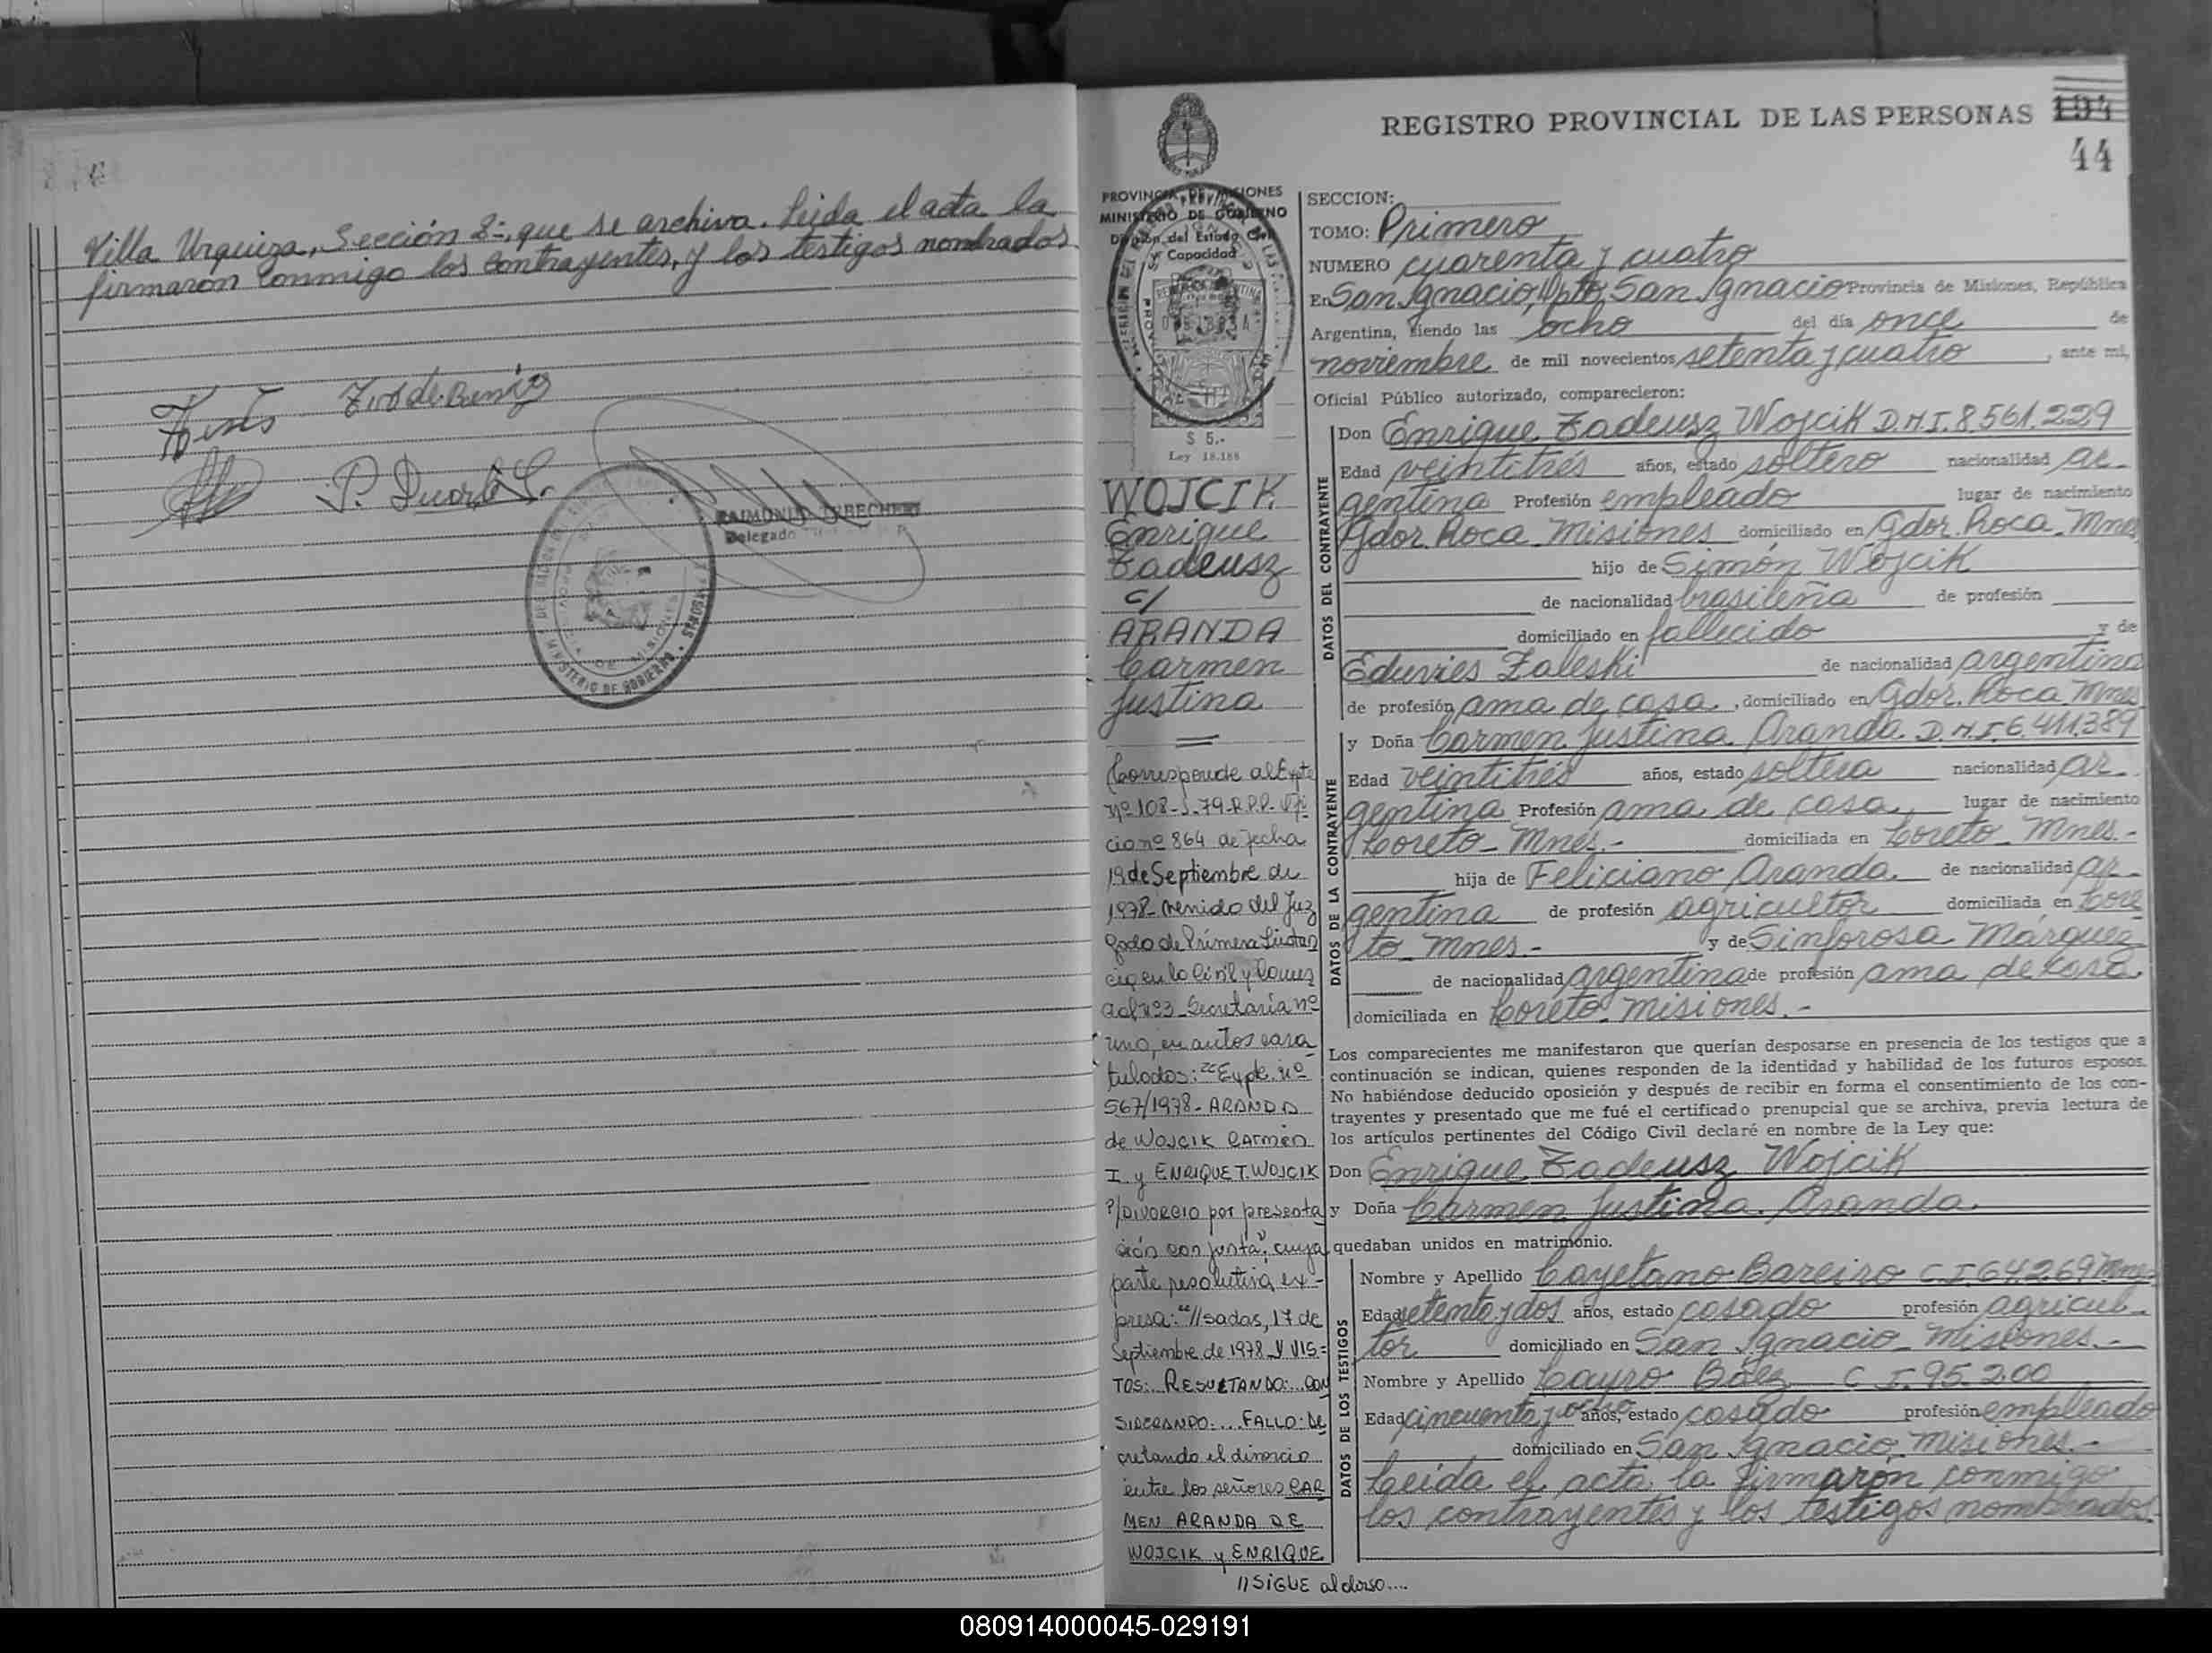 Villa Urquiza, Sección 2-, que se archiva. Leida el acta la
firmaron conmigo los contrayentes, y los testigos nombrados
P. Duarte
RAIMUNDO
Delegado
MINISTERIO DE GOBIERNO
REGISTRO PROVINCIAL DE LAS PERSONAS 194
44
PROVINCIA DE MISIONES
MINISTERIO DE GOBIERNO
División del Estado Civil
y Capacidad
$ 5.-
Ley 18.188
WOJCIK
Enrique
Tadeusz
c/
ARANDA
Carmen
Justina
Corresponde al Expte
nº 108-J-79-R.P.P. Ofi
cio nº 864 de fecha
19 de Septiembre de
1978- venido del Juz
gado de Primera Instan
cia en lo Civil y Comer
cial nº 3 Secretaría nº
uno, en autos cara
tulados: "Expte. nº
567/1978- ARANDA
de WOJCIK CARMEN
I. y ENRIQUE T. WOJCIK
P/DIVORCIO por presenta
ción conjunta", cuya
parte resolutiva, ex-
presa: "//sadas, 17 de
Septiembre de 1978 Y VIS=
TOS:.. RESULTANDO:..CON
SIDERANDO:... FALLO: DE
cretando el divorcio
entre los señores CAR
MEN ARANDA DE
WOJCIK y ENRIQUE
//SIGUE al dorso....
SECCION:
TOMO: Primero
NUMERO cuarenta y cuatro
En San Ignacio, Dpto. San Ignacio Provincia de Misiones, República
Argentina, siendo las ocho del día once de
noviembre de mil novecientos setenta y cuatro, ante mi,
Oficial Público autorizado, comparecieron:
DATOS DEL CONTRAYENTE
Don Enrique Tadeusz Wojcik D.N.I. 8.561.229
Edad veintitrés años, estado soltero nacionalidad ar-
gentina Profesión empleado lugar de nacimiento
Gdor. Roca Misiones domiciliado en Gdor. Roca Mnes
hijo de Simón Wojcik
de nacionalidad brasileña de profesión
domiciliado en fallecido y de
Eduvies Zaleski de nacionalidad argentina
de profesión ama de casa, domiciliado en Gdor. Roca Mnes
DATOS DE LA CONTRAYENTE
y Doña Carmen Justina Aranda D.N.I. 6.411.389
Edad veintitrés años, estado soltera nacionalidad ar-
gentina Profesión ama de casa lugar de nacimiento
Loreto-Mnes.- domiciliada en Loreto-Mnes.-
hija de Feliciano Aranda de nacionalidad ar-
gentina de profesión agricultor domiciliada en Lore
to-Mnes.- y de Sinforosa Márquez
de nacionalidad argentina de profesión ama de casa
domiciliada en Loreto-Misiones.-
Los comparecientes me manifestaron que querían desposarse en presencia de los testigos que a
continuación se indican, quienes responden de la identidad y habilidad de los futuros esposos.
No habiéndose deducido oposición y después de recibir en forma el consentimiento de los con-
trayentes y presentado que me fué el certificado prenupcial que se archiva, previa lectura de
los artículos pertinentes del Código Civil declaré en nombre de la Ley que:
Don Enrique Tadeusz Wojcik
y Doña Carmen Justina Aranda
quedaban unidos en matrimonio.
DATOS DE LOS TESTIGOS
Nombre y Apellido Cayetano Bareiro C.I. 64.269 Mnes
Edad setenta y dos años, estado casado profesión agricul-
tor domiciliado en San Ignacio-Misiones.-
Nombre y Apellido Lauro Báez C.I. 95.200
Edad cincuenta y ocho años, estado casado profesión empleado
domiciliado en San Ignacio, Misiones.-
Leída el acta la firmarón conmigo
los contrayentes y los testigos nombrados.
080914000045-029191